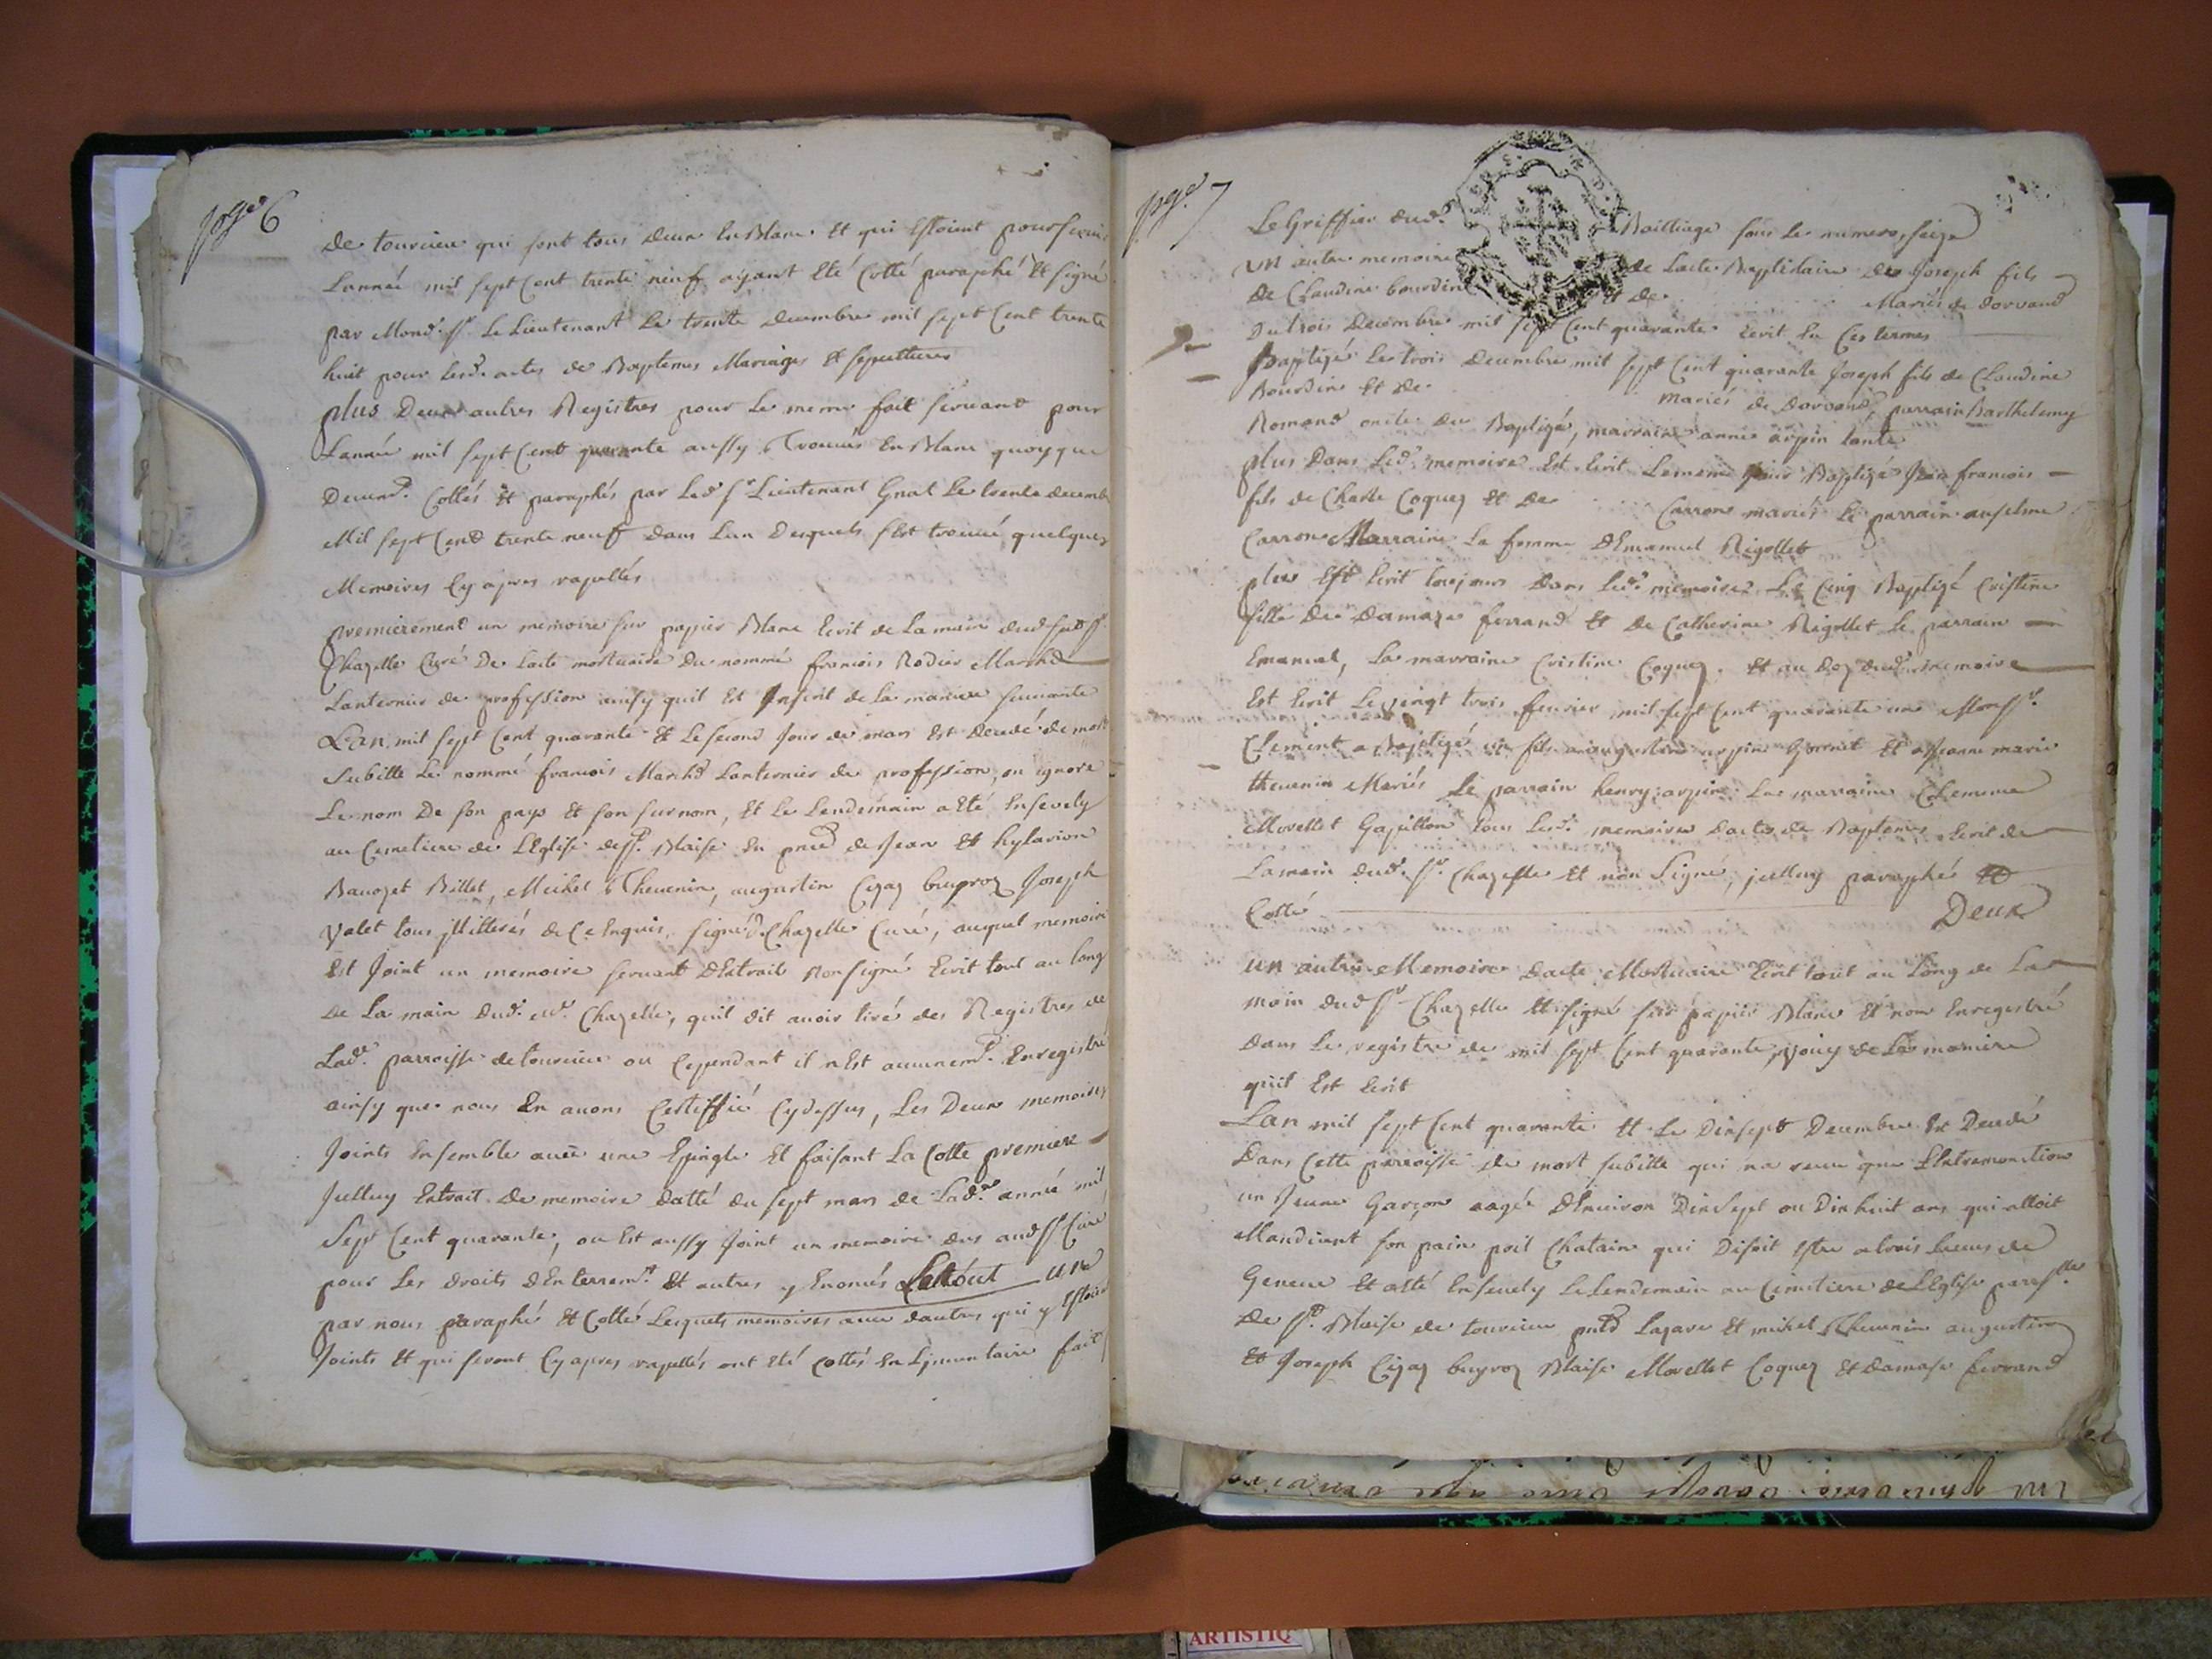 page 6
de tourcieu qui sont tous deux En Blanc Et qui Estoient pour servir
Lannée mil sept Cent trente neuf ayant Eté Cotté paraphé Et signé
par Mond. Sr. Le Lieutenant Le trente decembre mil sept Cent trente
huit pour lesd. actes de Baptemes Mariages Et sepultures
plus Deux autres Registres pour Le meme fait servant pour
Lannée mil sept Cent quarante aussy trouvés En Blanc quoyque
Cottés Et paraphés par Led Sr Lieutenant Gnal Le trente decemb
Mil sept Cent trente neuf dans Lun Desquels sest trouvé quelques
Memoires Cy apres rapellés
premierement un memoire sur papier Blanc Ecrit de La main dud Sr
Chazelle Curé De Lacte mortuaire Du nommé francois Rodier Marchd
Lanternier de profession ainsy quil Est Inserit de La maniere suivante
Lan mil sept Cent quarante Et Le second Jour de mars Est decedé de mort
subitte Le nommé francois Marchd Lanternier de profession, on ignore
Le nom De son pays Et son surnom, Et Le Lendemain a Eté Ensevely
au Cemetiere de LEglise de St. Blaise En pnce de Jean Et hylarion
Bavozet Billet, Michel Thevenin, augustin Cizaz bugroz Joseph
Valet tous illitterés de Ce Enquis, signé Chazelle Curé, auquel memoire
Est Joint un memoire servant DExtrait Non signé Ecrit tout au long
de La main Dud. Chazelle, quil dit avoir tiré des Registres de
Lade. parroisse de tourcieu ou Cependant il nEst aucunemt. Enregistré
ainsy que nous En avons Certiffié Cydessus, Les Deux memoires
Joints Ensemble avec une Epingle Et faisant La Cotte premiere
Jcelluy Extrait De memoire datté du sept mars de Lade. année mil
Sept Cent quarante, ou Est aussy Joint un memoire dus aud Sr Curé
pour Les droits dEnterremt. Et autres y Enoncés une
par nous paraphé Et Cotté Lesquels memoires avec dautres qui y Estoient
Joints Et qui seront Cy apres rapellés ont Eté Cottés En Linventaire fait
page 7
Le Griffier dud. Bailliage sous Le numero, seize
un autre memoire de Lacte Baptistaire de Joseph fils
De Claudine bourdin Et de Mariés de dorvand
Du trois decembre mil sept Cent quarante Ecrit En Ces termes
Baptizé Le trois decembre mil sept Cent quarante Joseph fils de Claudine
Bourdin Et de mariés de dorvand, parrain Barthelemy
Romand oncle du Baptizé, marraine anne arpin tante
plus Dans Led. memoire Est Ecrit Le meme jour Baptizé Jean francois
fils de Charle Coquez Et De Carron mariés Le parrain anselme
Carron Marraine La femme dEmanuel Rigollet
plus Est Ecrit toujours dans Led. memoire Le Cinq Baptizé Cristine
fille De Damaze ferrand Et de Catherine Rigollet Le parrain
Emanuel, La marraine Cristine Coquez. Et au doz dud. memoire
Est Ecrit Le vingt trois fevrier mil sept Cent quarante un Monsr.
Clement a Baptizé un fils a augustin arpin Gornet Et a Jeanne marie
thevenin Mariés Le parrain henry arpin La marraine Clemme
Morellet Gapillon tous Lesd. memoires dactes de Baptemes Ecrit de
La main dud. Sr. Chazelle Et non signé, jcelluy paraphé Et
Cotté Deux
un autre Memoire dacte Mortuaire Ecrit tout au Long de La
main dud Sr Chazelle Et signé sur papier Blanc Et non Enregistré
dans Le registre de mil sept Cent quarante, de La maniere
quil Est Ecrit
Lan mil sept Cent quarante Et Le Dixsept Decembre Est Decedé
Dans Cette parroisse de mort subitte qui na receu que LExtremonction
un Jeune Garçon aagée dEnviron Dixsept ou Dixhuit ans qui alloit
Mandiant son pain poil Chatain qui Disoit Estre a trois lieues de
Geneve Et a Eté Ensevely Le Lendemain au Cimetiere de LEglise
De St. Blaise de tourcieu Lazare Et michel Thevenin augustin
Et Joseph Cizaz bugroz Blaise Morellet Coquez Et damase ferrand
ARTISTIQ